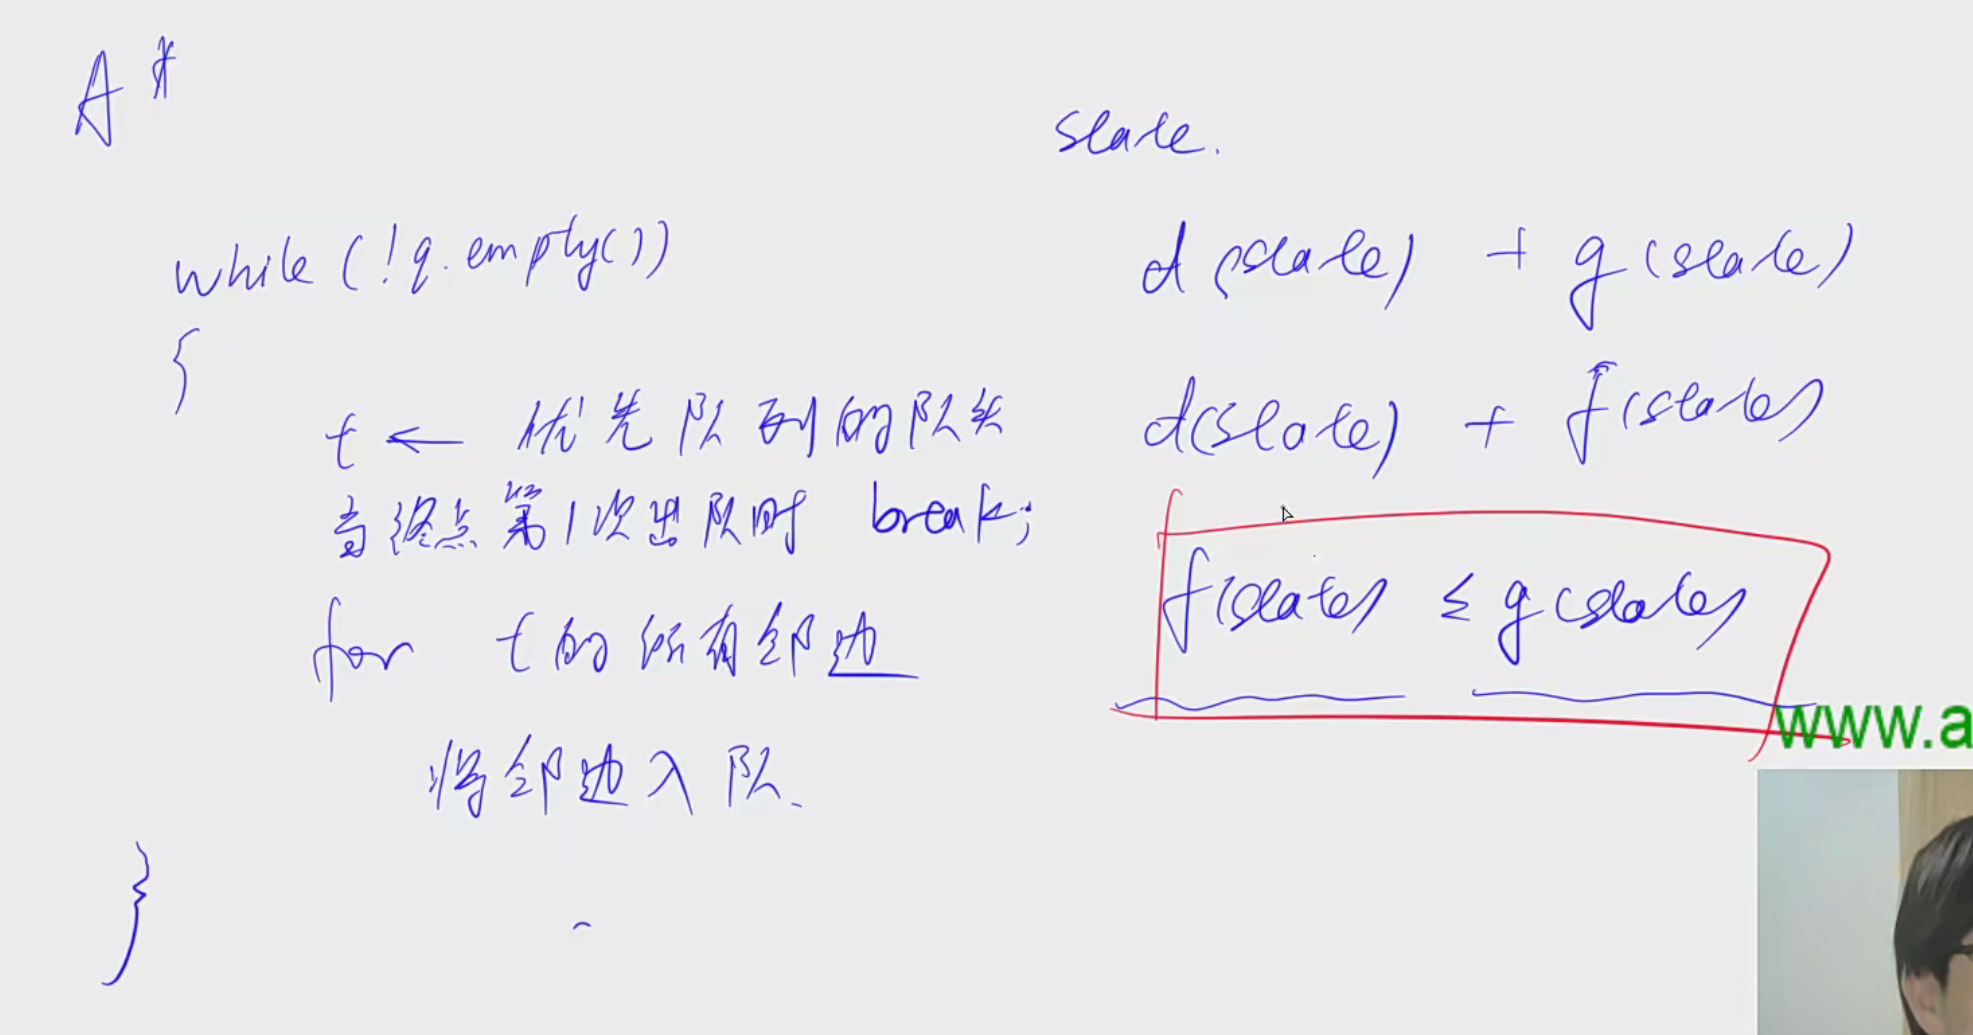 A*
while(!q.empty())
{
t ← 优先队列的队头
当终点第1次出队时 break;
for t的所有邻边
将邻边入队.
}
state.
d(state) + g(state)
d(state) + f(state)
f(state) ≤ g(state)
www.a